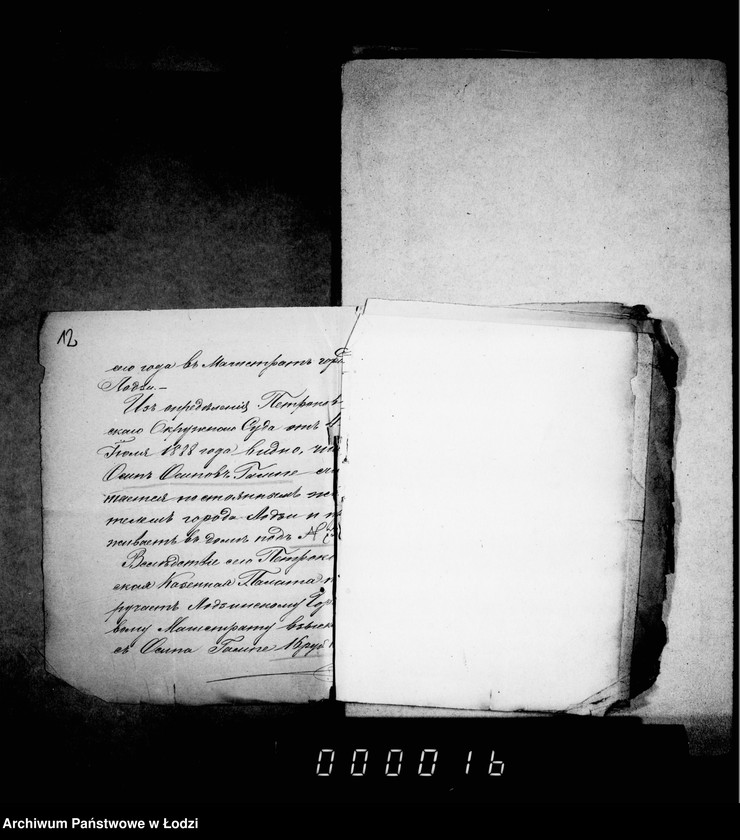 12
сего года въ Магистратъ гор
Лодзи.—
Изъ опредѣленія Петроков
скаго Окружнаго Суда отъ
Іюля 1888 года видно, что
Осипъ Осиповъ Гампе счи
тается постояннымъ жи
телемъ города Лодзи и п
живаетъ въ домѣ подъ №
Вслѣдствіе сего Петроко
ская Казенная Палата п
ручаетъ Лодзинскому Горо
вому Магистрату взыск
съ Осипа Гампе 16 руб
000016
Archiwum Państwowe w Łodzi